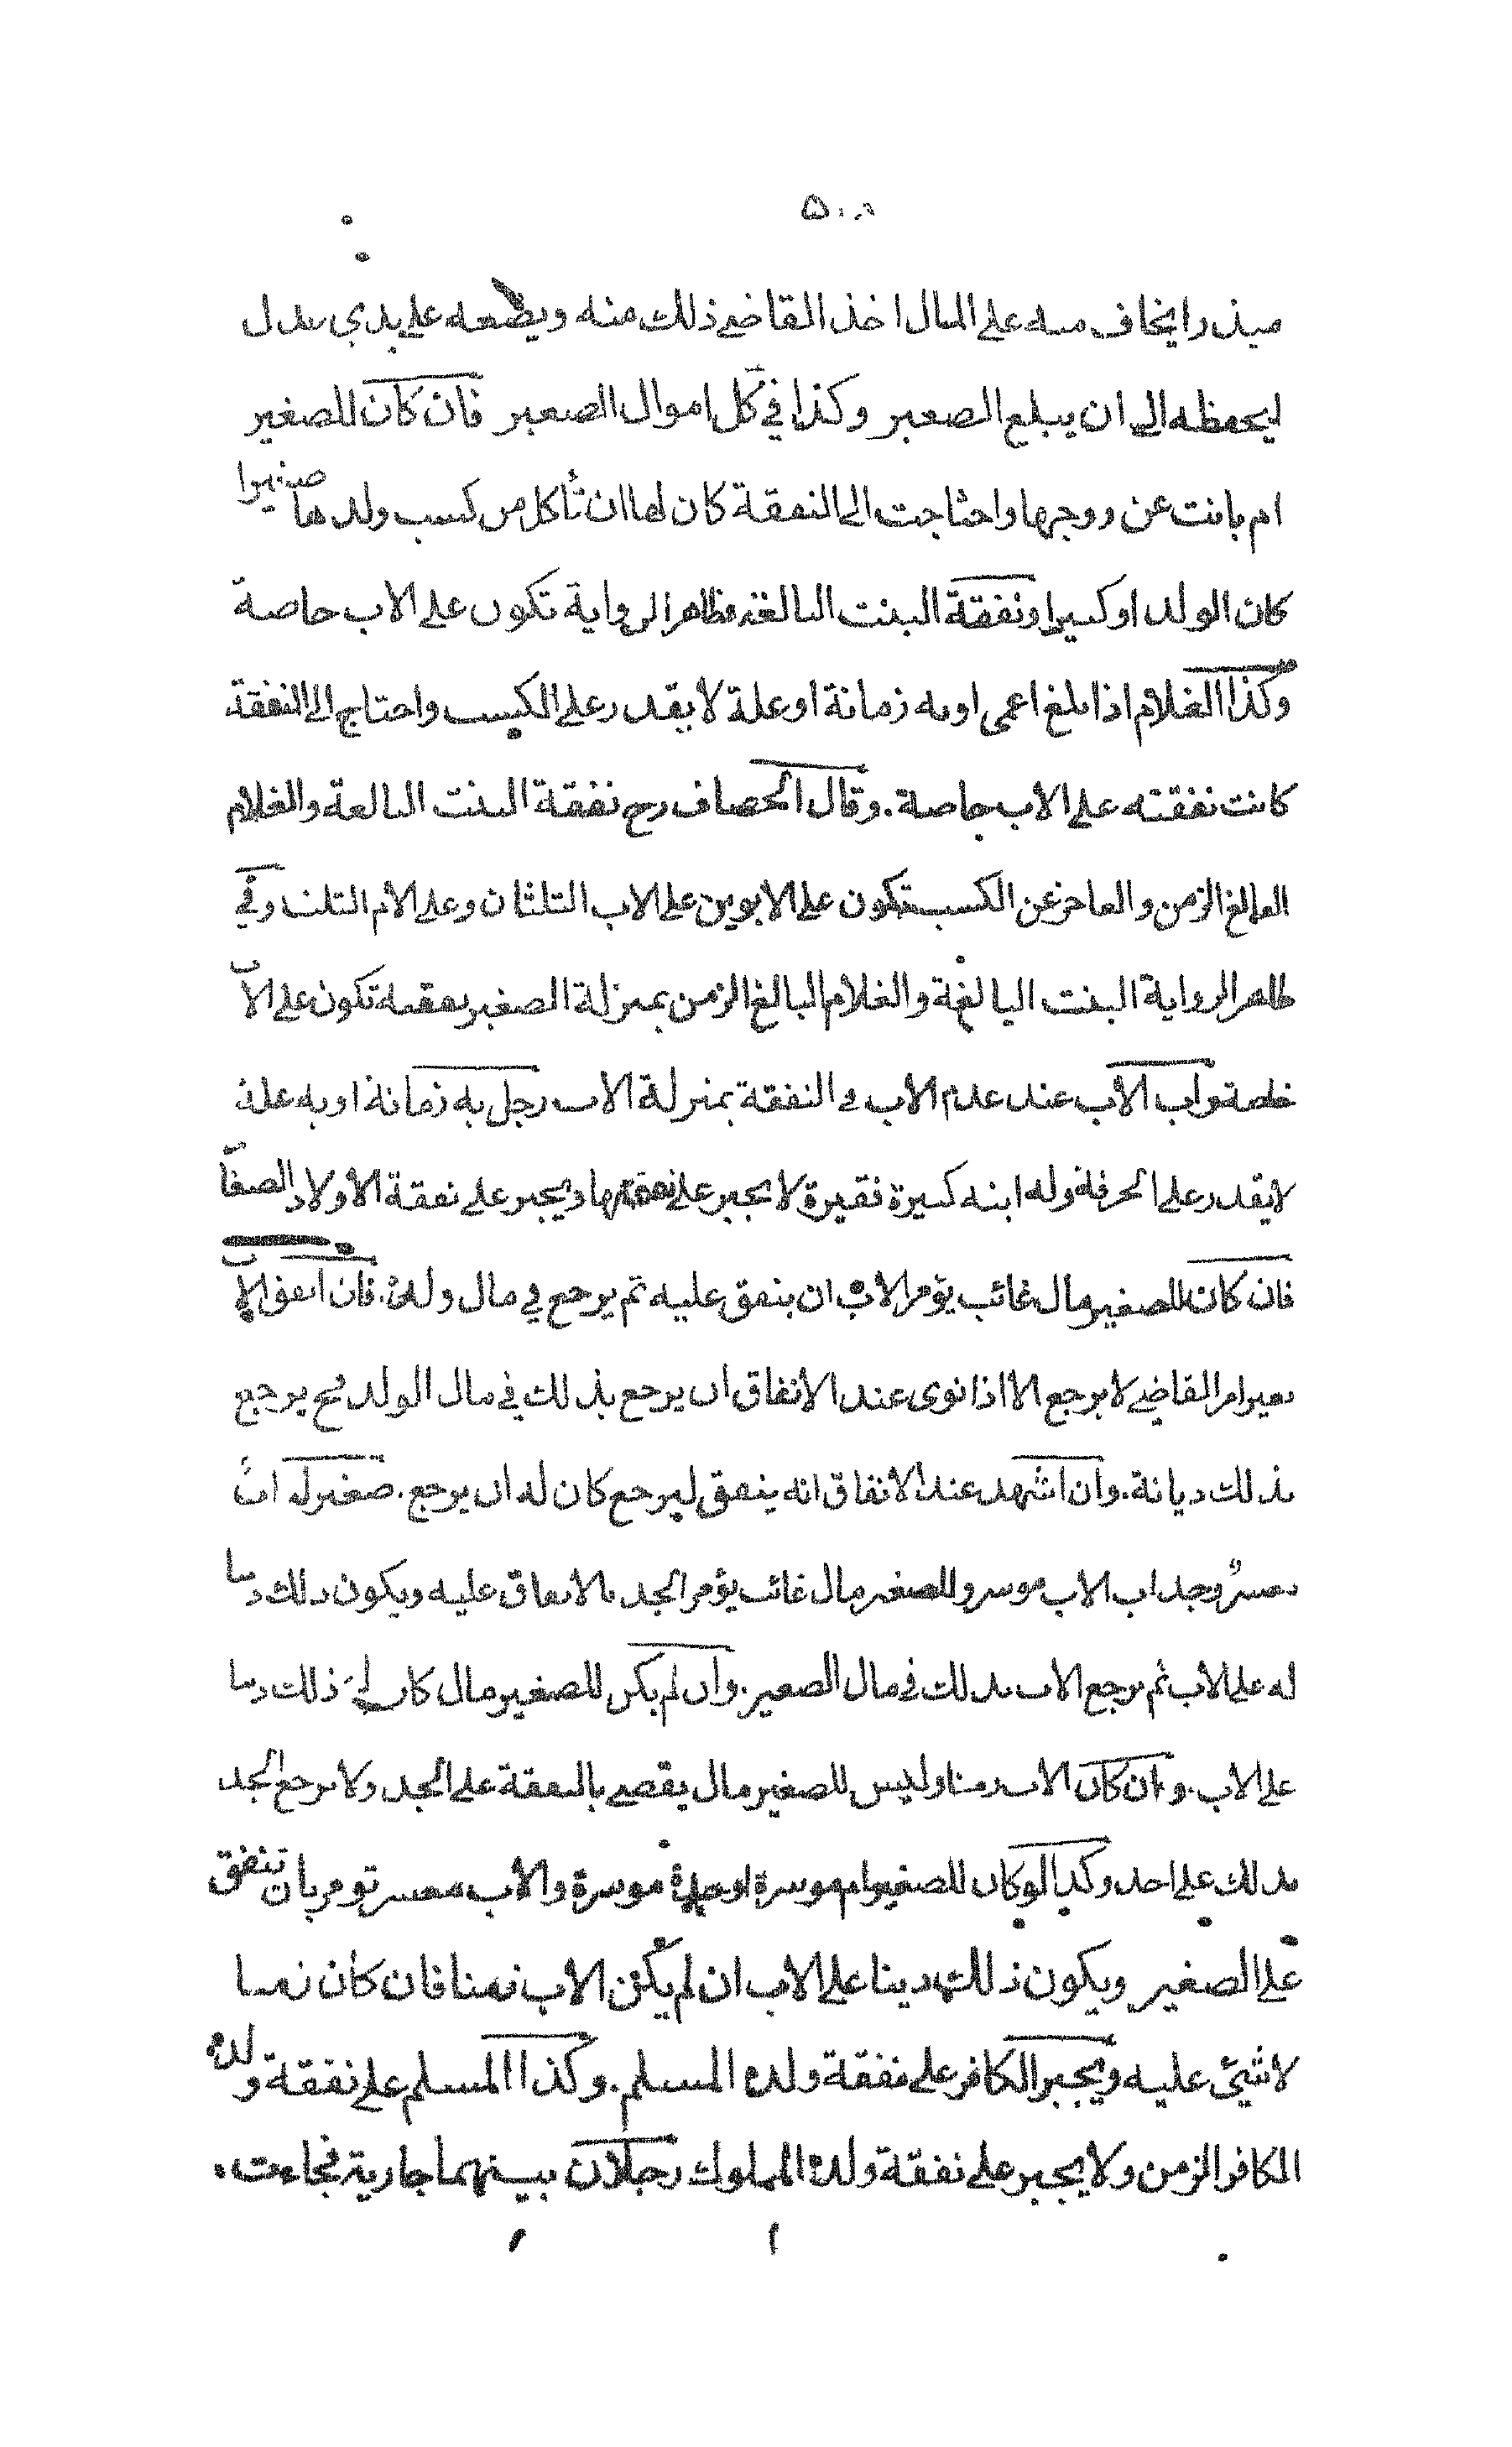 ۵۰۸
مبذرا يخاف منه على المال اخذ القاضي ذلك منه ويضعه على يدي عدل
ليحفظه الى ان يبلغ الصغير وكذا في كل اموال الصغير فان كان للصغير
ام بانت عن زوجها واحتاجت الى النفقة كان لها ان تأكل من كسب ولدها صغيرا
كان الولد او كبيرا ونفقة البنت البالغة في ظاهر الرواية تكون على الاب خاصة
وكذا الغلام اذا بلغ اعمى او به زمانة او علة لا يقدر على الكسب واحتاج الى النفقة
كانت نفقته على الاب خاصة. وقال الخصاف رح نفقة البنت البالغة والغلام
البالغ الزمن والعاجز عن الكسب تكون على الابوين على الاب الثلثان وعلى الام الثلث وفي
ظاهر الرواية البنت البالغة والغلام البالغ الزمن بمنزلة الصغير نفقته تكون على الاب
خاصة واب الاب عند عدم الاب في النفقة بمنزلة الاب رجل به زمانة او به علة
لا يقدر على الحرفة وله ابنة كبيرة فقيرة لا يجبر على نفقتها ويجبر على نفقة الاولاد الصغار
فان كان للصغير مال غائب يؤمر الاب ان ينفق عليه ثم يرجع في مال ولده. فان انفق الاب
بغير امر القاضي لا يرجع الا اذا نوى عند الانفاق ان يرجع بذلك في مال الولد مح يرجع
بذلك ديانة. وان اشهد عند الانفاق انه ينفق ليرجع كان له ان يرجع. صغير له اب
معسر وجد اب الاب موسر وللصغير مال غائب يؤمر الجد بالانفاق عليه ويكون ذلك دينا
له على الاب ثم يرجع الاب بذلك في مال الصغير. وان لم يكن للصغير مال كان ذلك دينا
على الاب. وان كان الاب زمنا وليس للصغير مال يقضى بالنفقة على الجد ولا يرجع الجد
بذلك على احد وكذا لو كان للصغير ام موسرة او جدة موسرة والاب معسر تومر بان تنفق
على الصغير ويكون ذلك دينا على الاب ان لم يكن الاب زمنا فان كان زمنا
لا شيئ عليه ويجبر الكافر على نفقة ولده المسلم. وكذا المسلم على نفقة ولده
الكافر الزمن ولا يجبر على نفقة ولده المملوك رجلان بينهما جارية فجاءت.